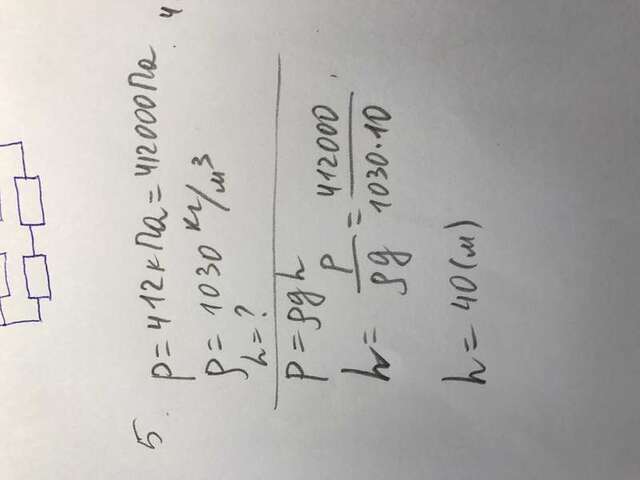 5. P = 412 кПа = 412000 Па
ρ = 1030 кг/м³
h = ?
P = ρgh
h = P/ρg = 412000/1030·10
h = 40 (м)